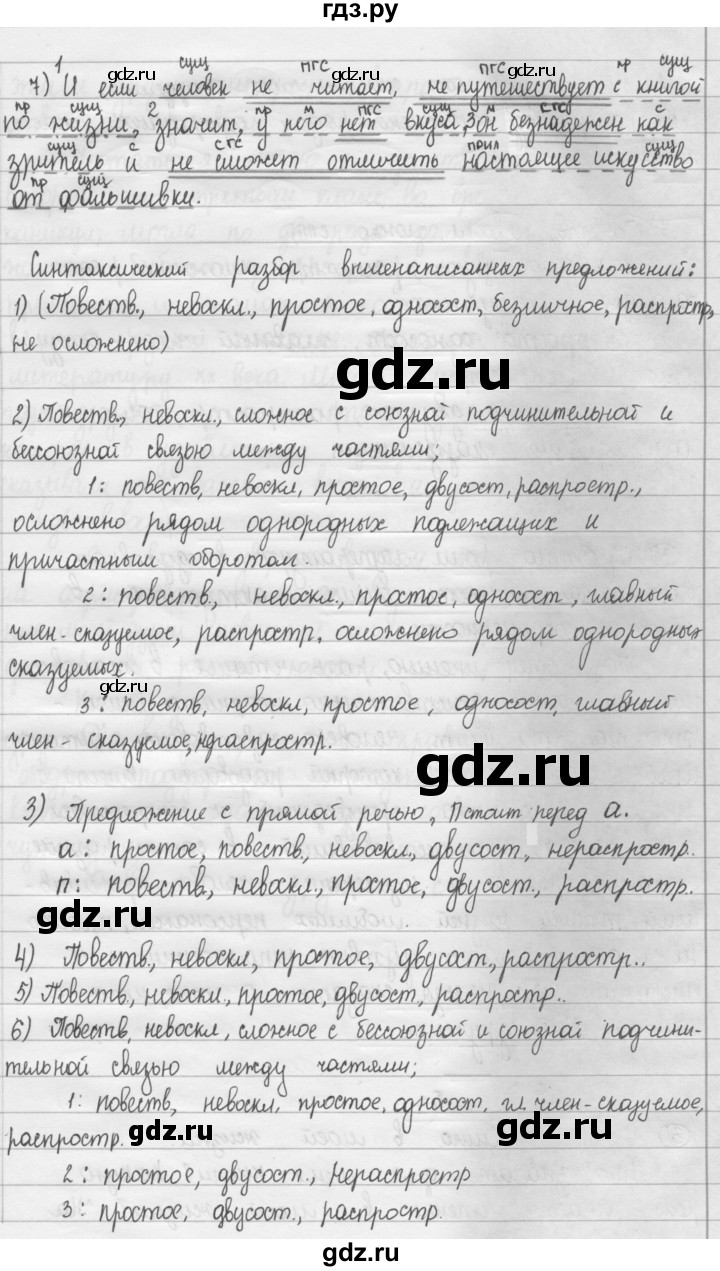 гдз.ру
1 сущ ПГС ПГС пр сущ
7) И если человек не читает, не путешествует с книгой
пр сущ 2 пр м ПГС сущ м СГС с
по жизни, значит, у него нет вкуса, 3 он безнадежен как
сущ с СГС прил сущ
зритель и не сможет отличить настоящее искусство
пр сущ
от фальшивки.
Синтаксический разбор вышенаписанных предложений:
1) (Повеств., невоскл., простое, односост, безличное, распростр,
не осложнено)
2) Повеств., невоскл., сложное с союзной подчинительной и
бессоюзной связью между частями;
1: повеств, невоскл, простое, двусост, распростр.,
осложнено рядом однородных подлежащих и
причастным оборотом.
2: повеств, невоскл., простое, односост, главный
член-сказуемое, распростр, осложнено рядом однородных
сказуемых.
3: повеств, невоскл, простое, односост, главный
член - сказуемое, нераспростр.
3) Предложение с прямой речью, П стоит перед а.
а: простое, повеств, невоскл, двусост, нераспростр.
п: повеств, невоскл, простое, двусост., распростр.
4) Повеств., невоскл, простое, двусост, распростр..
5) Повеств., невоскл, простое, двусост, распростр..
6) Повеств, невоскл, сложное с бессоюзной и союзной подчини-
тельной связью между частями;
1: повеств, невоскл, простое, односост, гл. член-сказуемое,
распростр.
2: простое, двусост., нераспростр
3: простое, двусост., распростр.
gdz.ru
gdz.ru
gdz.ru
gdz.ru
gdz.ru
gdz.ru
gdz.ru
gdz.ru
gdz.ru
gdz.ru
gdz.ru
gdz.ru